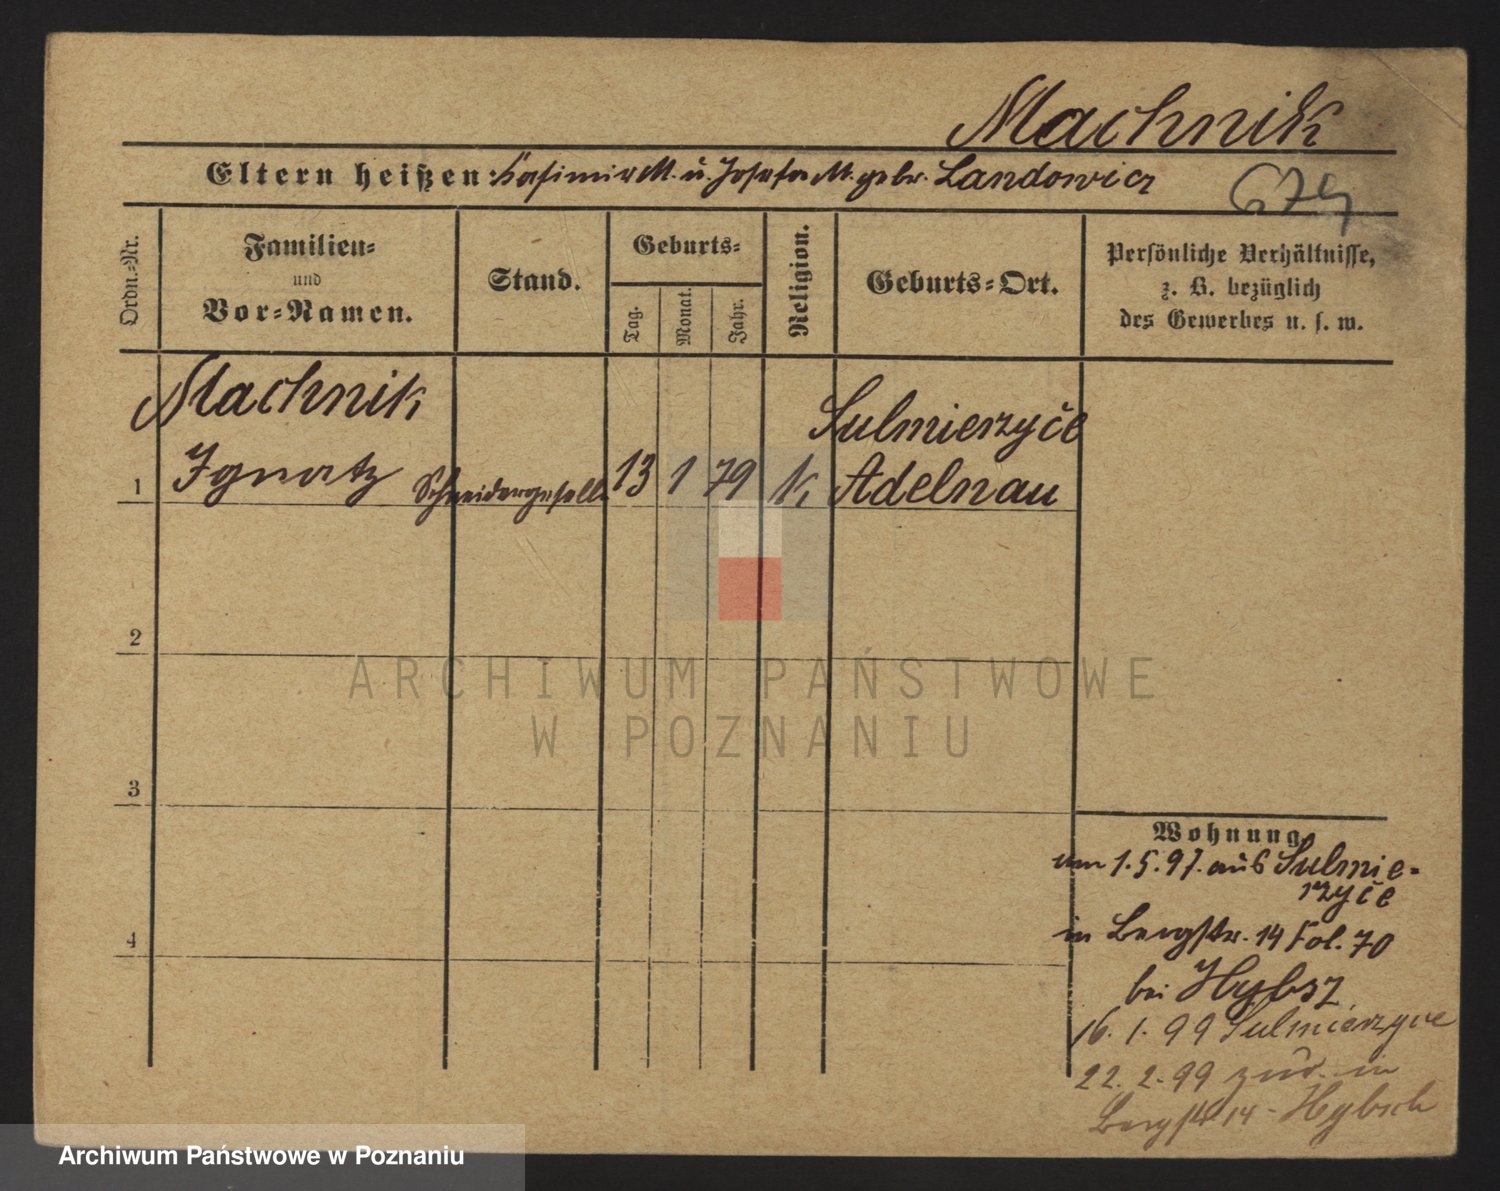 Machnik
Eltern heißen: Kasimir M. u. Josefa M. gebr. Landowicz
679
Ordn.-Nr.
Familien-
und
Vor-Namen.
Stand.
Geburts-
Tag.
Monat.
Jahr.
Religion.
Geburts-Ort.
Persönliche Verhältnisse,
z. B. bezüglich
des Gewerbes u. s. w.
Machnik
Sulmierzyče
1 Ignatz Schneidergeselle 13 1 79 k. Adelnau
2
3
4
ARCHIWUM PAŃSTWOWE
W POZNANIU
Wohnung
am 1.5.97. aus Sulmie-
rzyče
in Bergstr. 14 Fol. 70
bei Hybsz
16. 1. 99 Sulmierzyce
22. 2. 99 zur. in
Bergstr 14 - Hybsch
Archiwum Państwowe w Poznaniu